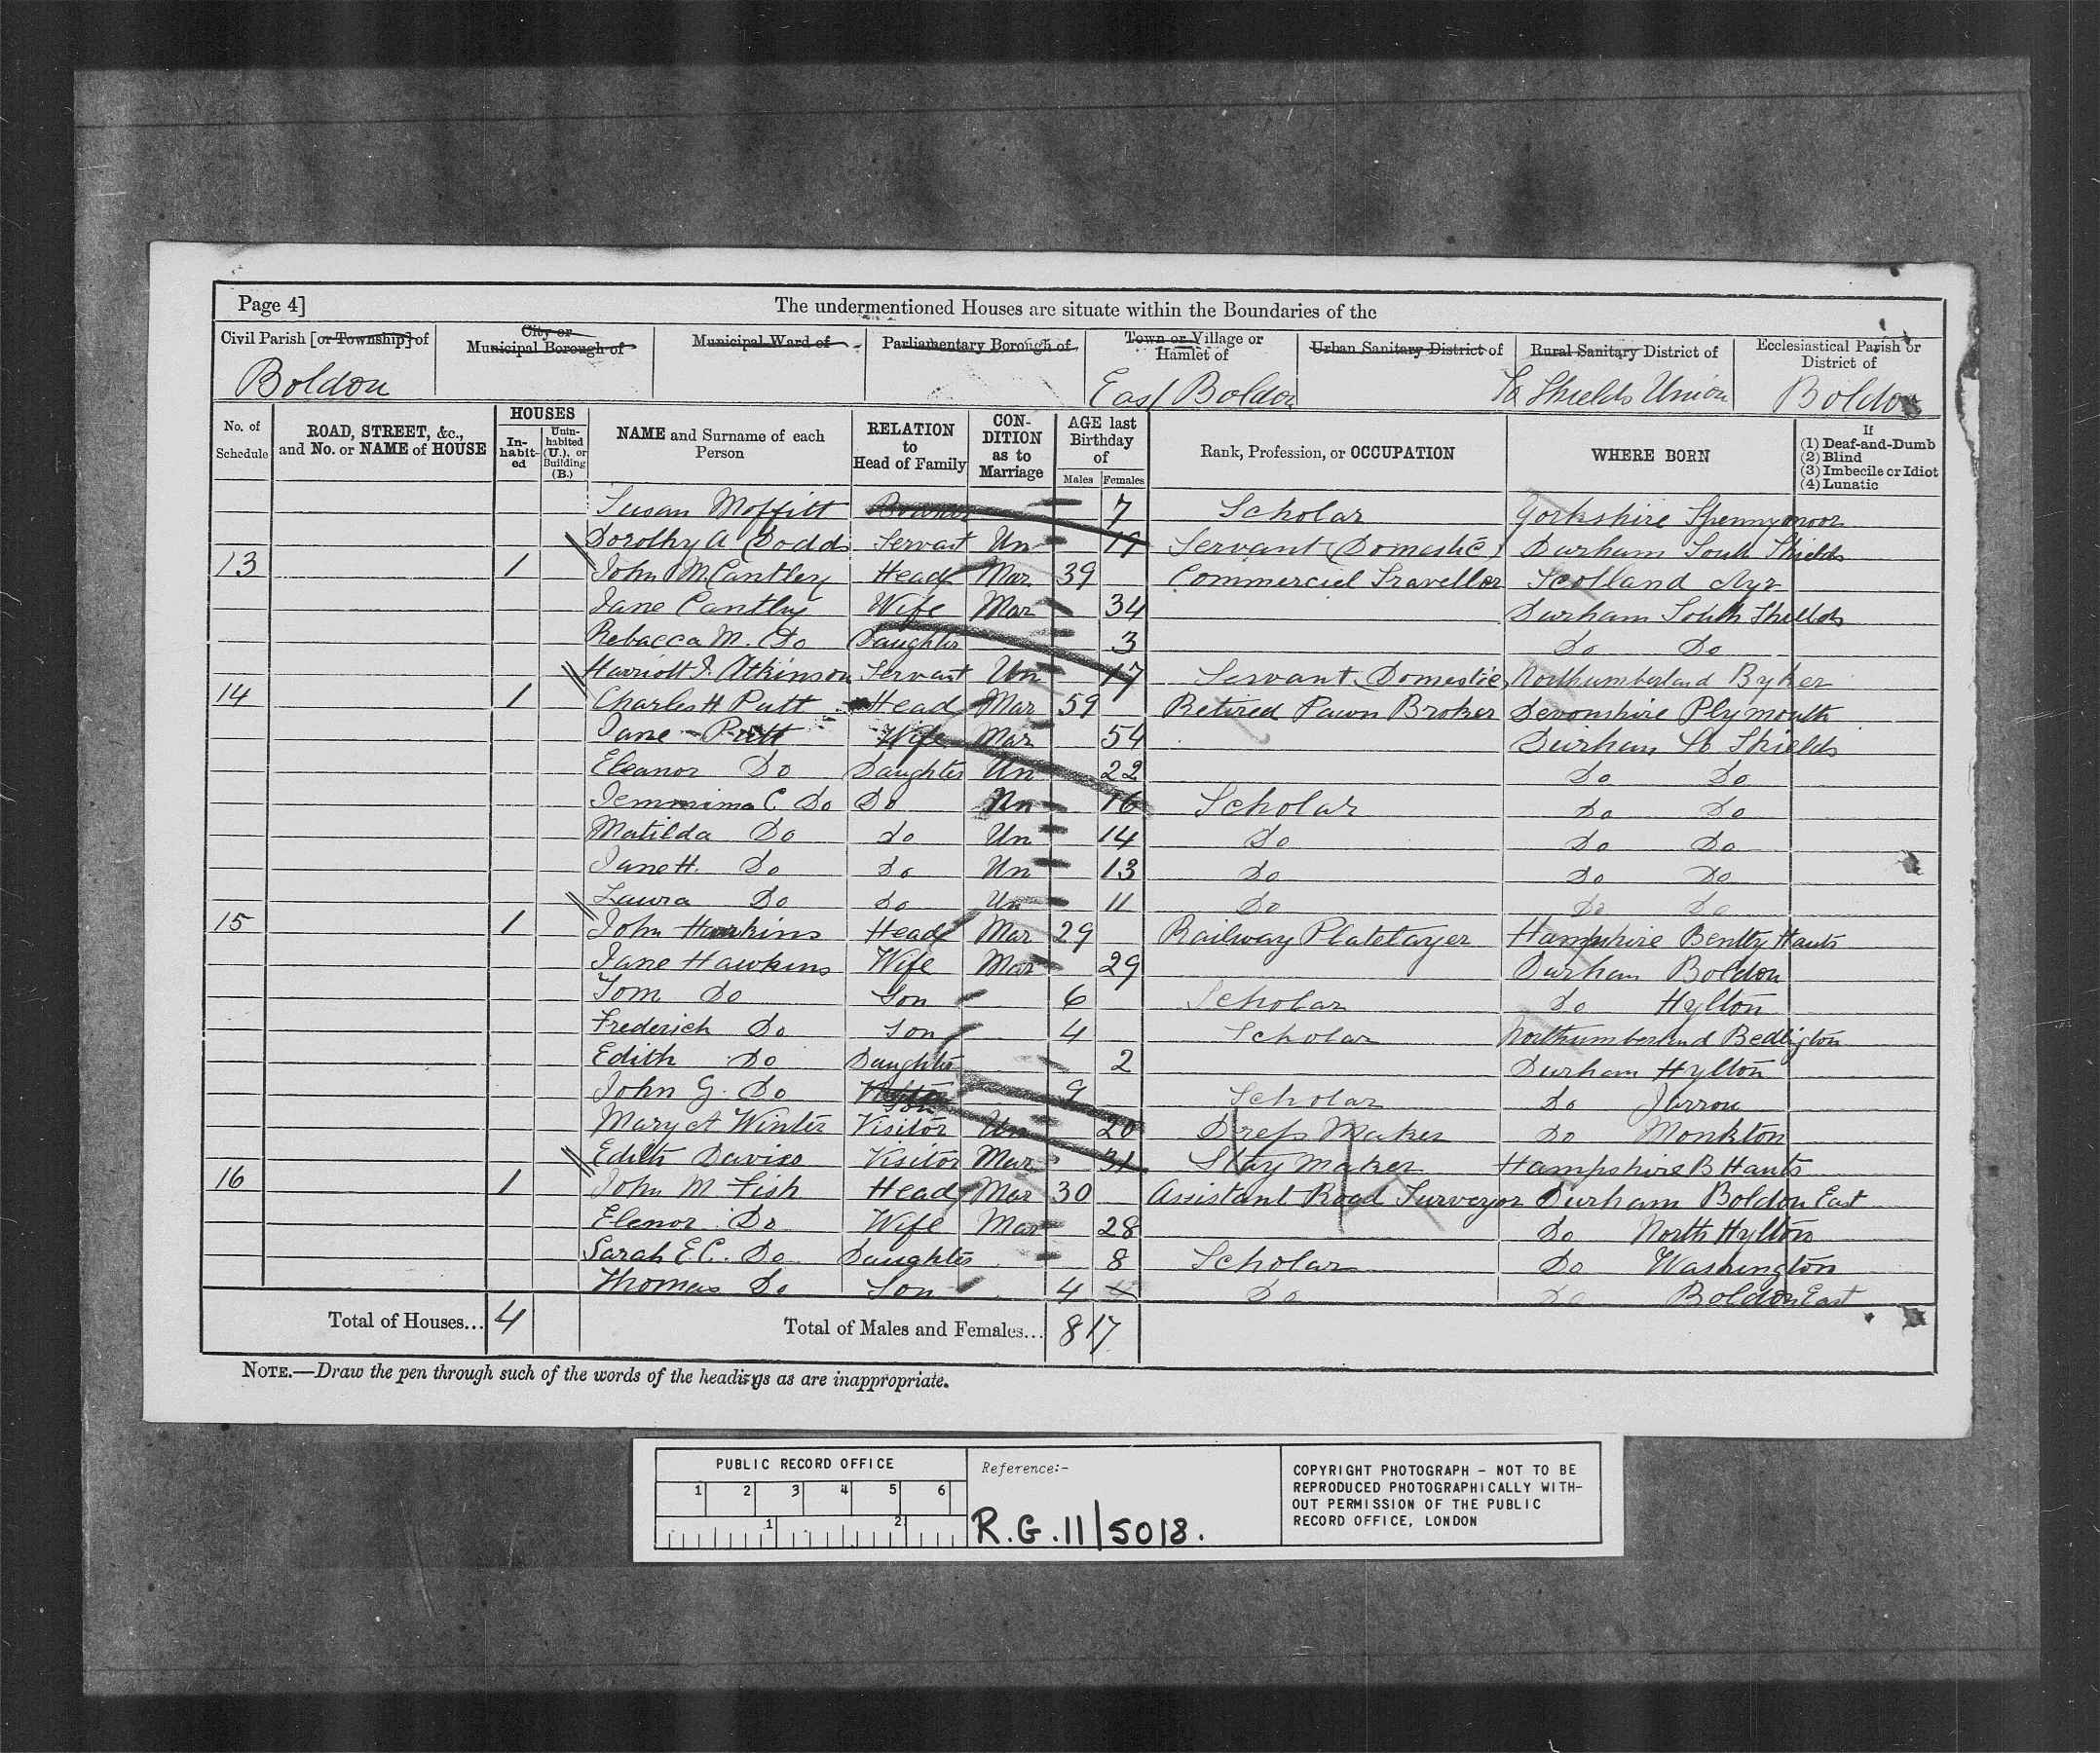 Page 4]
The undermentioned Houses are situate within the Boundaries of the
Civil Parish [or Township] of
City or Municipal Borough of
Municipal Ward of
Parliamentary Borough of
Town or Village or Hamlet of
Urban Sanitary District of
Rural Sanitary District of
Ecclesiastical Parish or District of
Boldon East Boldon So Shields Union Boldon
No. of Schedule
ROAD, STREET, &c., and No. or NAME of HOUSE
HOUSES
In-habit-ed
Unin-habited (U.), or Building (B.)
NAME and Surname of each Person
RELATION to Head of Family
CON-DITION as to Marriage
AGE last Birthday of
Males Females
Rank, Profession, or OCCUPATION
WHERE BORN
If
(1) Deaf-and-Dumb
(2) Blind
(3) Imbecile or Idiot
(4) Lunatic
Susan Moffitt Boarder 7 Scholar Yorkshire Spennymoor
Dorothy A Dodds Servant Un 19 Servant (Domestic) Durham South Shields
13 1 John M. Cantley Head Mar 39 Commerciel Traveller Scotland Ayr
Jane Cantley Wife Mar 34 Durham South Shields
Rebacca M. Do Daughter 3 Do Do
Harriott J. Atkinson Servant Un 17 Servant Domestic Northumberland Byker
14 1 Charles H Putt Head Mar 59 Retired Pawn Broker Devonshire Plymouth
Jane Putt Wife Mar 54 Durham So Shields
Eleanor Do Daughter Un 22 Do Do
Jemmima C. Do Do Un 16 Scholar Do Do
Matilda Do do Un 14 Do Do Do
Jane H. Do Do Un 13 Do Do Do
Laura Do do Un 11 Do Do Do
15 1 John Hawkins Head Mar 29 Railway Platelayer Hampshire Bentley Hants
Jane Hawkins Wife Mar 29 Durham Boldon
Tom Do Son 6 Scholar Do Hylton
Frederick Do Son 4 Scholar Northumberland Bedlington
Edith Do Daughter 2 Durham Hylton
John G. Do Visitor Son 9 Scholar Do Jarrow
Mary A Winter Visitor Un 20 Dress Maker Do Monkton
Edith Davies Visitor Mar 31 Stay Maker Hampshire B Hants
16 1 John M Fish Head Mar 30 Assistant Road Surveyor Durham Boldon East
Elenor Do Wife Mar 28 Do North Hylton
Sarah E.C. Do Daughter 8 Scholar Do Washington
Thomas Do Son 4 Do Do Boldon East
Total of Houses... 4 Total of Males and Females... 8 17
NOTE.—Draw the pen through such of the words of the headings as are inappropriate.
PUBLIC RECORD OFFICE
1 2 3 4 5 6
1 2
Reference:-
R.G. 11/5018.
COPYRIGHT PHOTOGRAPH - NOT TO BE
REPRODUCED PHOTOGRAPHICALLY WITH-
OUT PERMISSION OF THE PUBLIC
RECORD OFFICE, LONDON